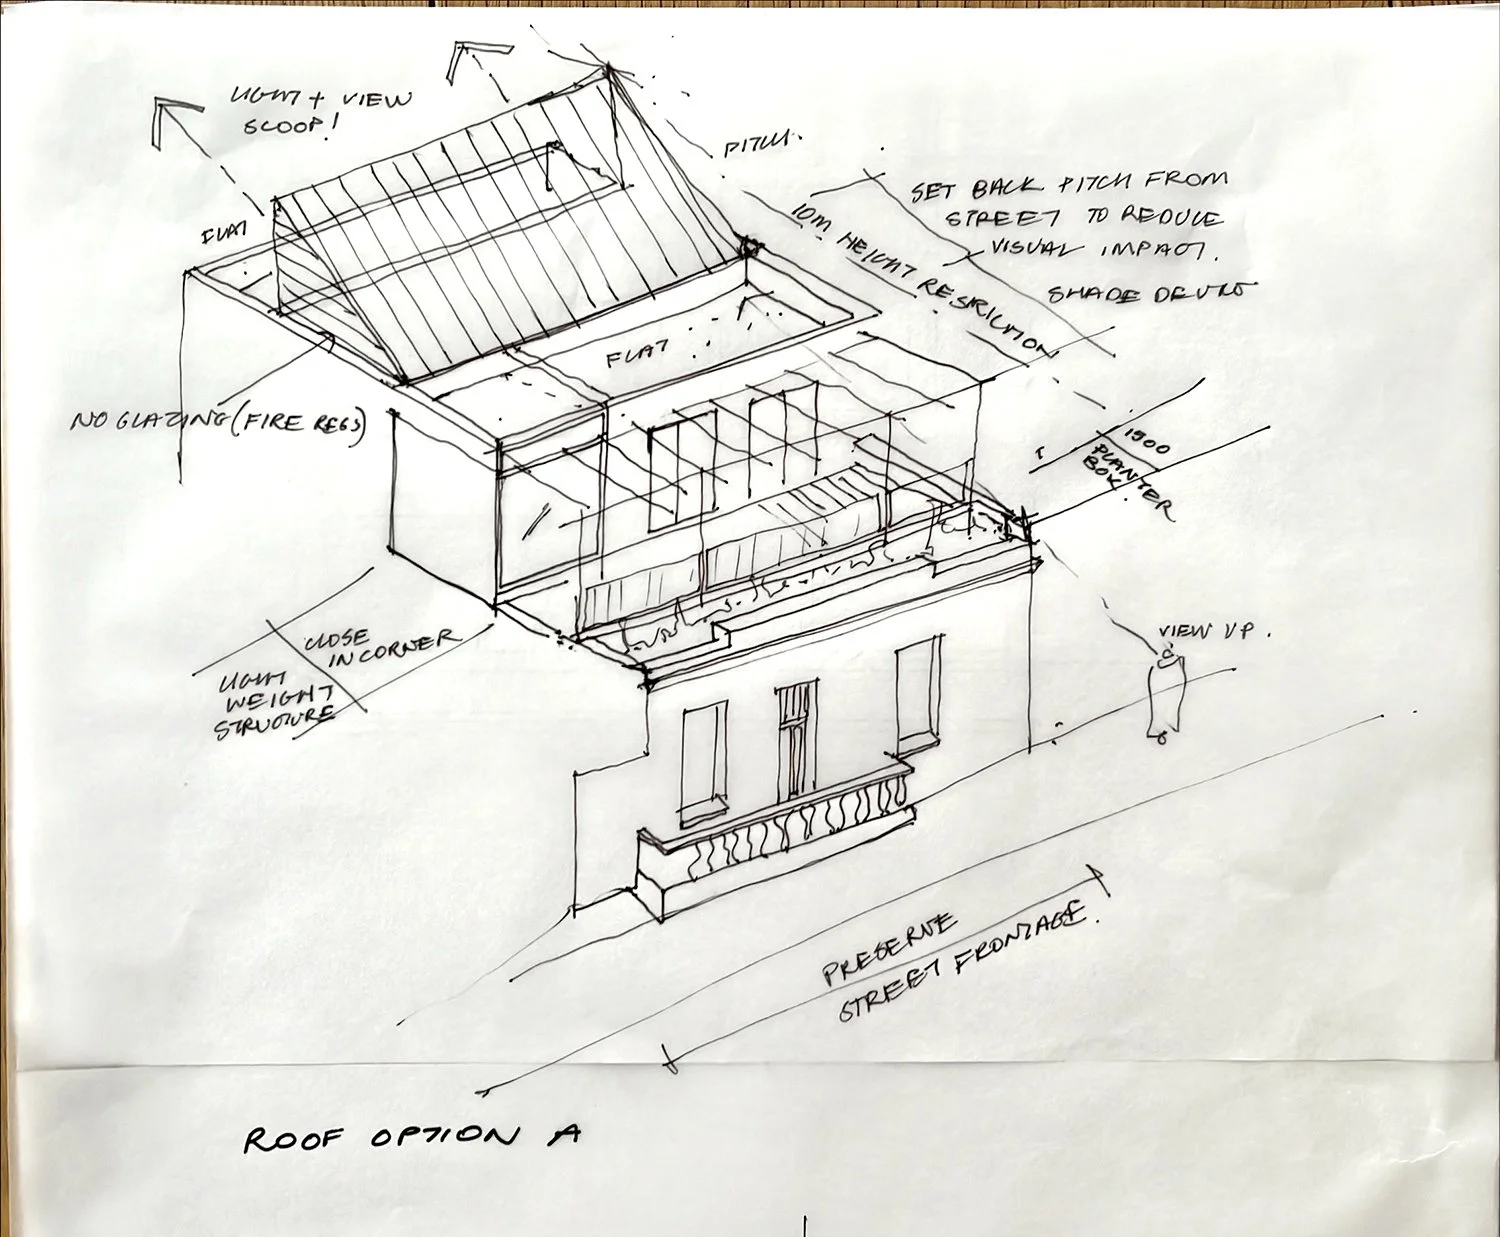 LIGHT + VIEW
SCOOP!
PITCH.
FLAT
SET BACK PITCH FROM
STREET TO REDUCE
VISUAL IMPACT.
10M HEIGHT RESTRICTION
SHADE DEVICE
FLAT
NO GLAZING (FIRE REGS)
1900
PLANTER
BOX.
CLOSE
IN CORNER
LIGHT
WEIGHT
STRUCTURE
VIEW UP.
PRESERVE
STREET FRONTAGE.
ROOF OPTION A